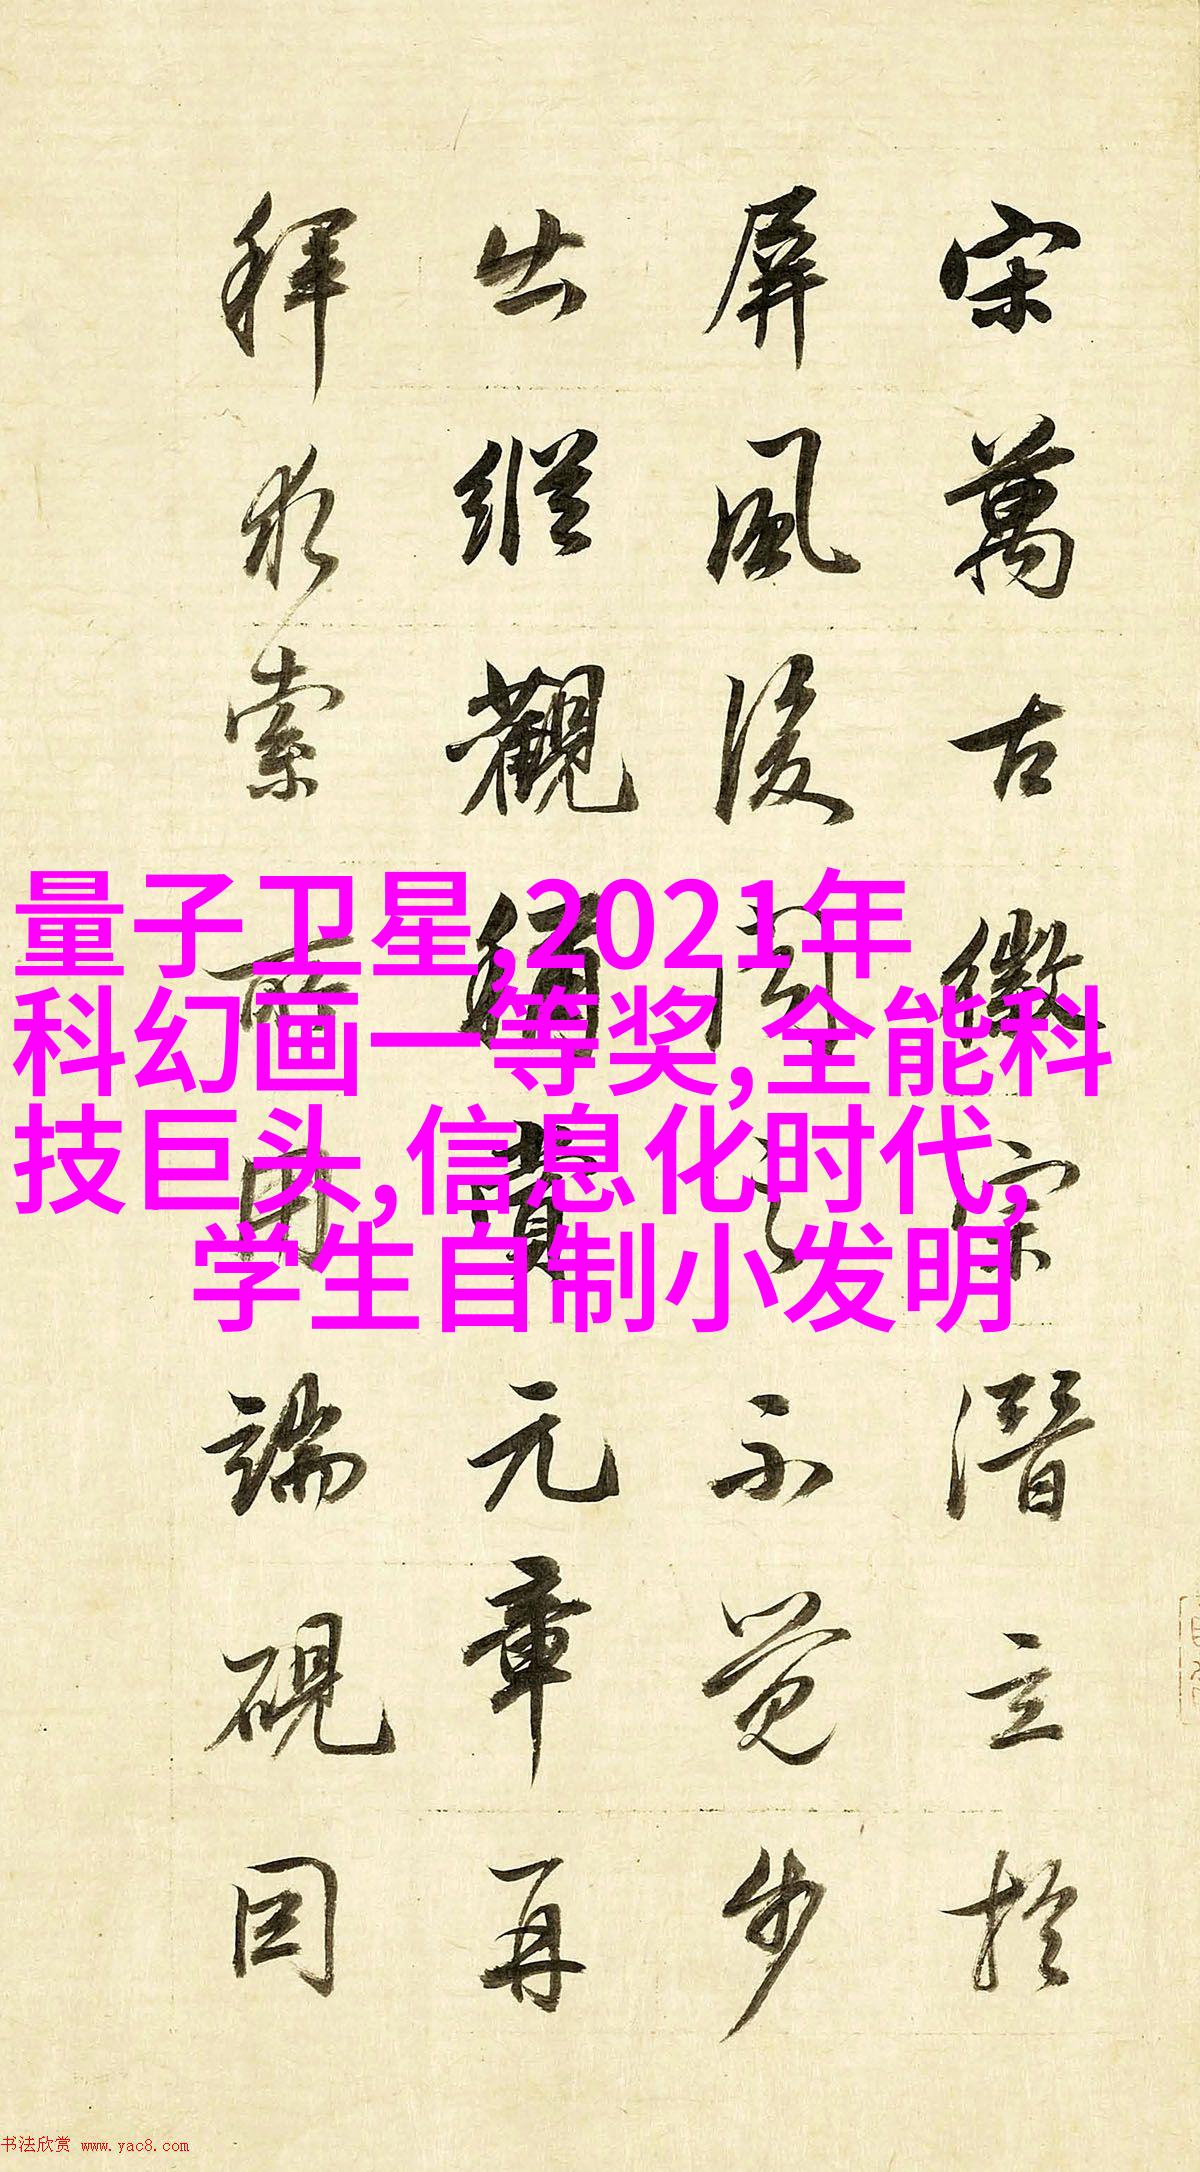 宋萬古徽宗潛立於
屏風後聞之不覺步
出縱觀稱賞元章再
拜求索所用端硯因
量子卫星,2021年
科幻画一等奖,全能科
技巨头,信息化时代,
学生自制小发明
书法欣赏 www.yac8.com